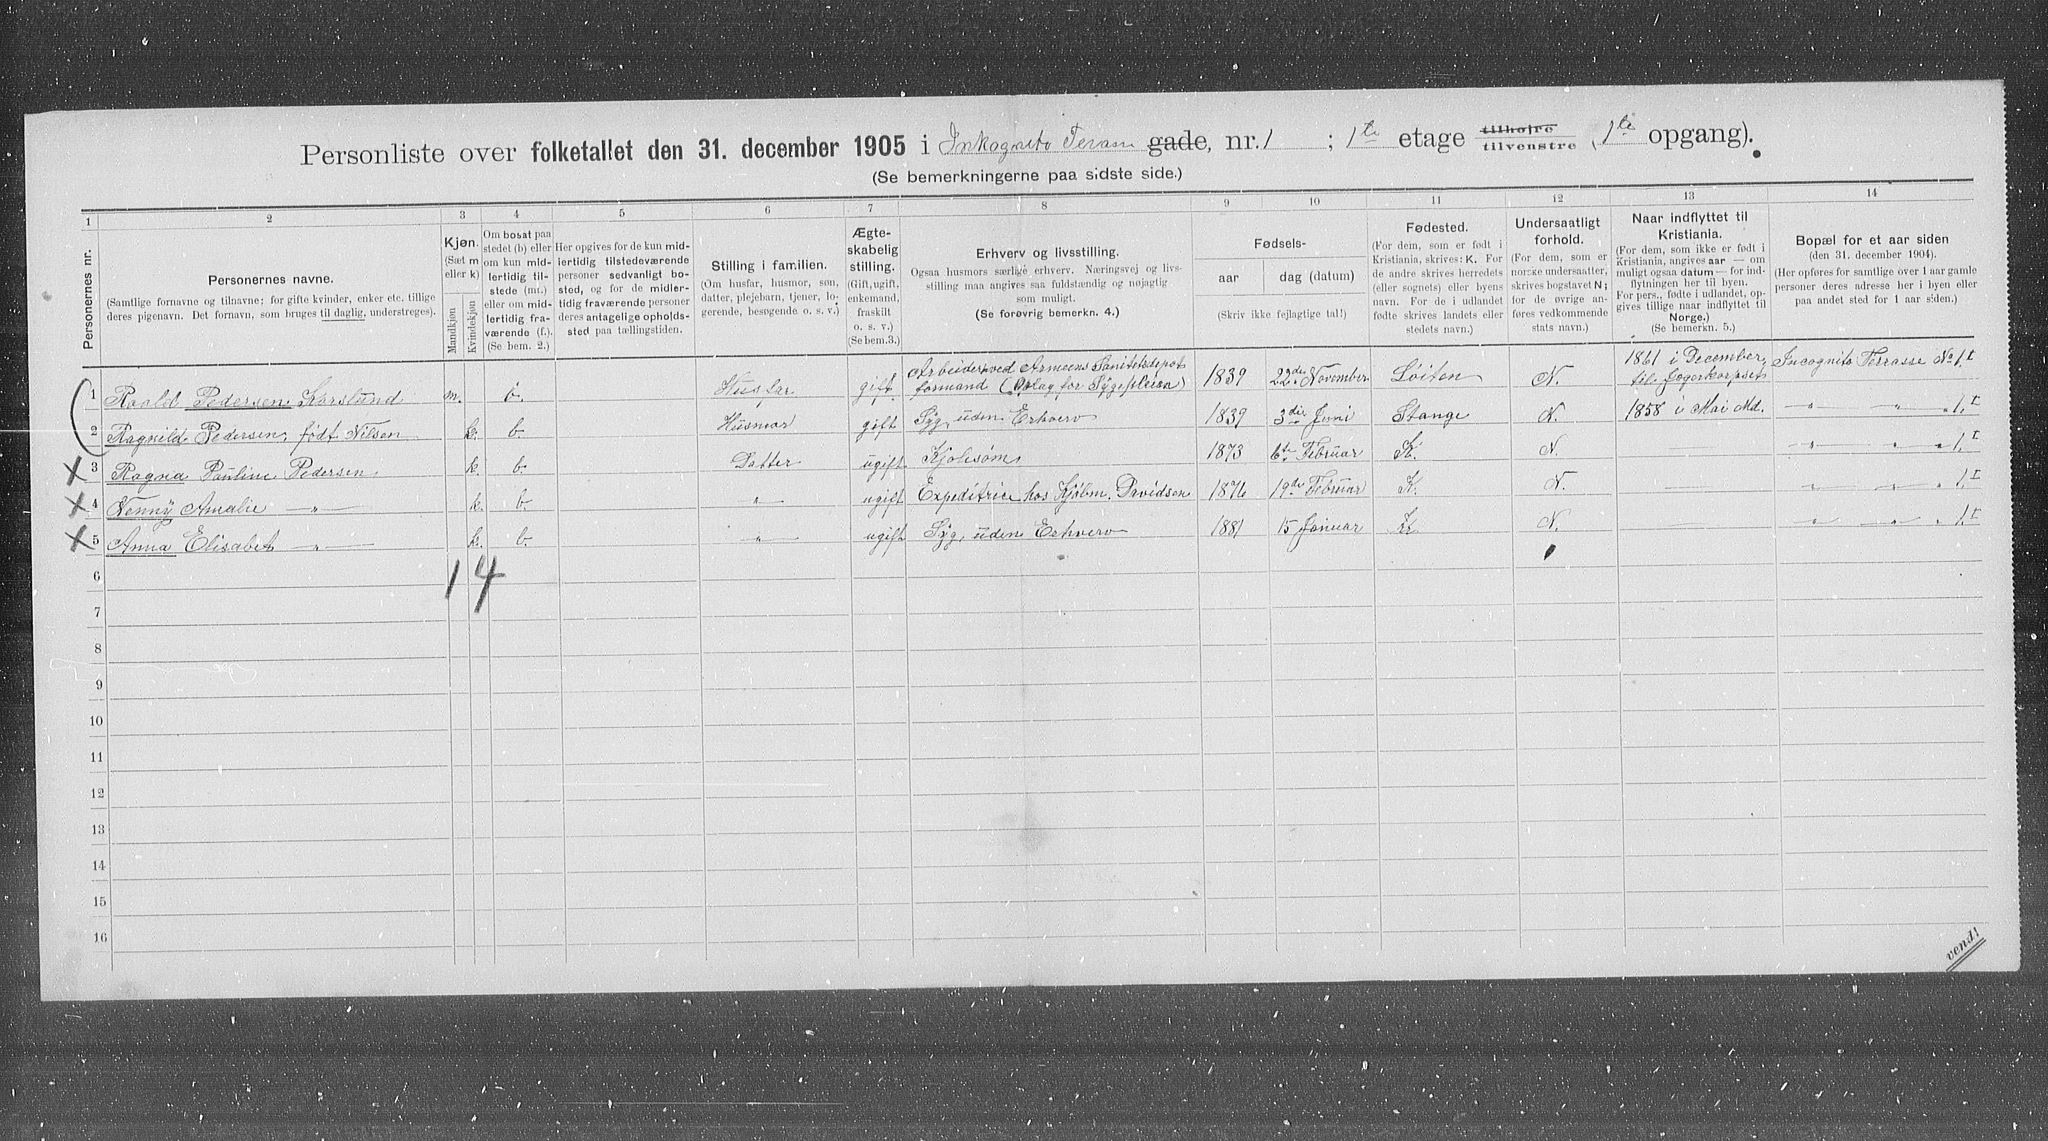 Personliste over folketallet den 31. december 1905 i Inkognito Terasse gade, nr. 1 ; 1te etage tilhøjre tilvenstre (1te opgang).
(Se bemerkningerne paa sidste side.)
1 2 3 4 5 6 7 8 9 10 11 12 13 14
Personernes nr.
Personernes navne.
(Samtlige fornavne og tilnavne; for gifte kvinder, enker etc. tillige
deres pigenavn. Det fornavn, som bruges til daglig, understreges).
Kjøn.
(Sæt m
eller k)
Mandkjøn
Kvindekjøn
Om bosat paa
stedet (b) eller
om kun mid-
lertidig til-
stede (mt.)
eller om mid-
lertidig fra-
værende (f.).
(Se bem. 2.)
Her opgives for de kun mid-
lertidig tilstedeværende
personer sedvanligt bo-
sted, og for de midler-
tidig fraværende personer
deres antagelige opholds-
sted paa tællingstiden.
Stilling i familien.
(Om husfar, husmor, søn,
datter, plejebarn, tjener, lo-
gerende, besøgende o. s. v.)
Ægte-
skabelig
stilling.
(Gift, ugift,
enkemand,
fraskilt
o. s. v.)
(Se bem.3.)
Erhverv og livsstilling.
Ogsaa husmors særlige erhverv. Næringsvej og livs-
stilling maa angives saa fuldstændig og nøjagtig
som muligt.
(Se forøvrig bemerkn. 4.)
Fødsels-
aar
dag (datum)
(Skriv ikke fejlagtige tal!)
Fødested.
(For dem, som er født i
Kristiania, skrives: K. For
de andre skrives herredets
(eller sognets) eller byens
navn. For de i udlandet
fødte skrives landets eller
stedets navn.)
Undersaatligt
forhold.
(For dem, som er
norske undersaatter,
skrives bogstavet N;
for de øvrige an-
føres vedkommende
stats navn.)
Naar indflyttet til
Kristiania.
(For dem, som ikke er født i
Kristiania, angives aar — om
muligt ogsaa datum — for ind-
flytningen her til byen.
For pers., fødte i udlandet, op-
gives tillige naar indflyttet til
Norge.)
(Se bemerkn. 5.)
Bopæl for et aar siden
(den 31. december 1904).
(Her opføres for samtlige over 1 aar gamle
personer deres adresse her i byen eller
paa andet sted for 1 aar siden.)
1 Roald Pedersen Karslund m. b. Husfar gift Arbeider ved Armeens Sanitetsdepot formand ( for Sygepleien) 1839 22de November Löiten N. 1861 i December til Jægerkorpset Incognito Terrasse No 1. I
2 Ragnild Pedersen, født Nilsen k. b. Husmor gift Syg, uden Erhverv 1839 3die Juni Stange N. 1858 i Mai Md. " " " 1. I
3 Ragna Pauline Pedersen k. b. Datter ugift Kjolesøm 1873 6te Februar K. N. " " " 1. I
4 Nenny Amalie " k. b. " ugift Expeditrice hos Kjøbm. Davidsen 1876 19de Februar K. N. " " " 1. I
5 Anna Elisabet " k. b. " ugift Syg, uden Erhverv 1881 15 Januar K N. " " " 1. I
6 1 4
7
8
9
10
11
12
13
14
15
16
vend!